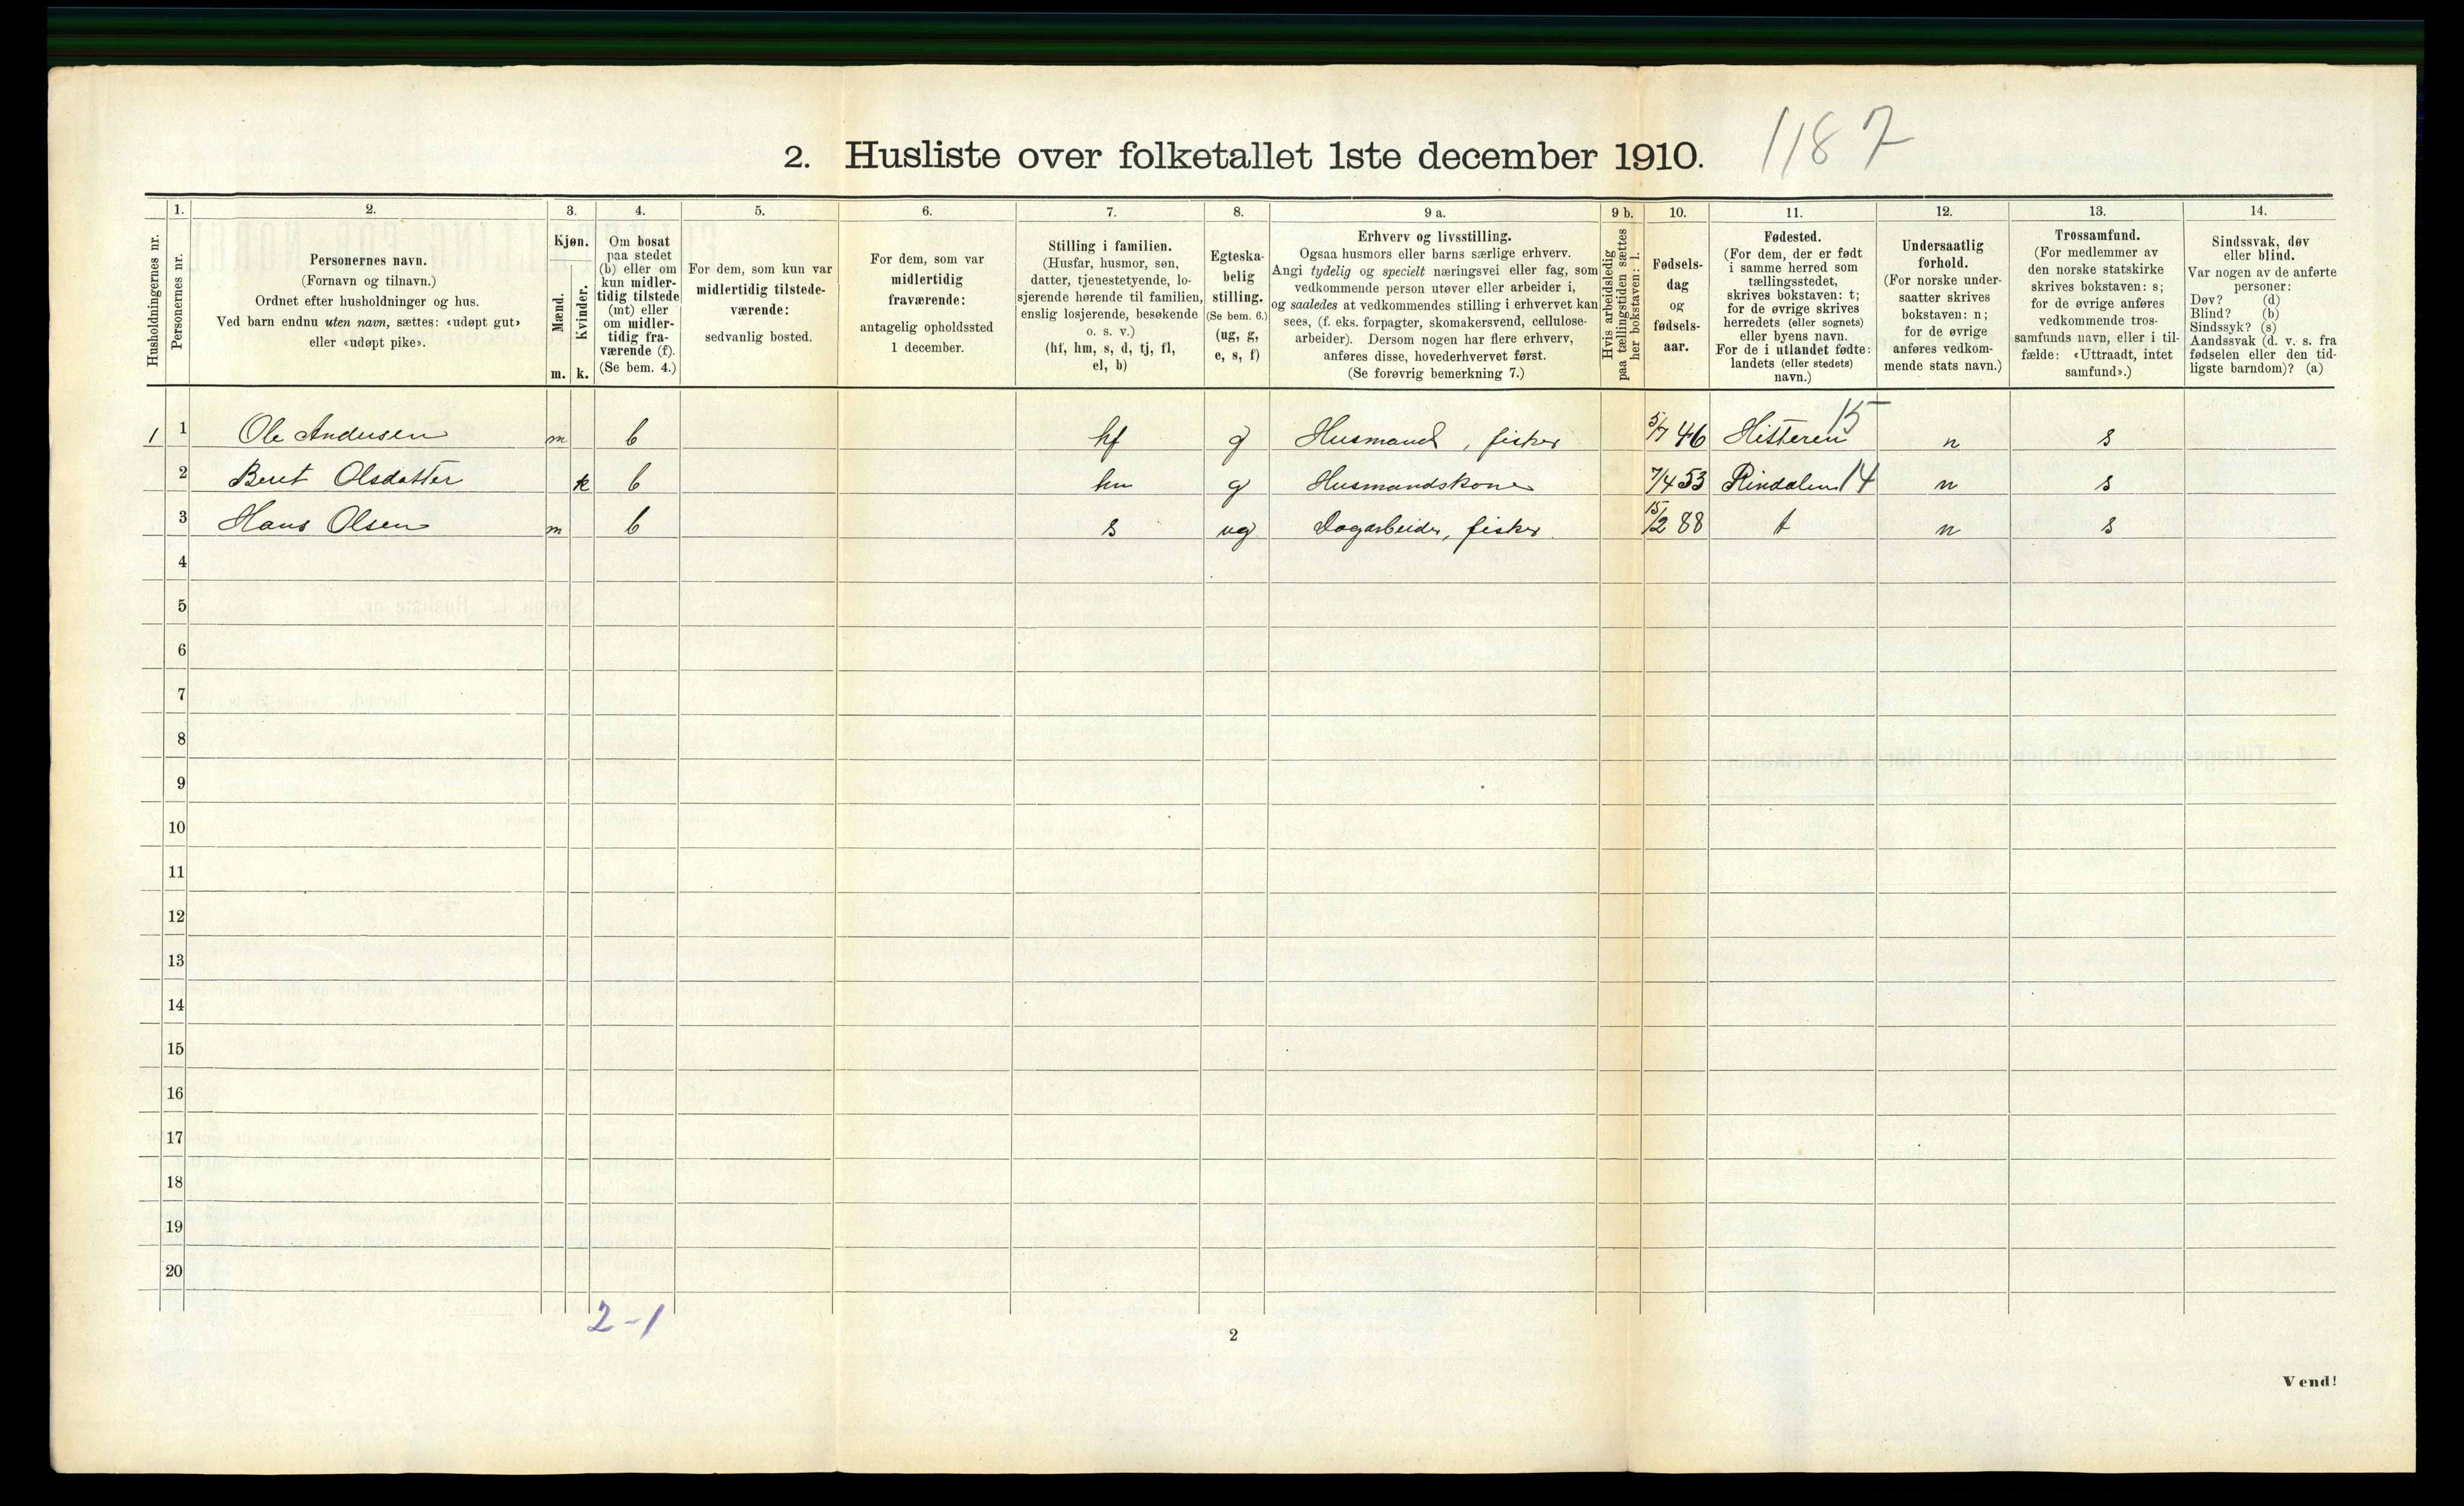 2. Husliste over folketallet 1ste december 1910. 1187
Husholdningernes nr.
1.
Personernes nr.
2.
Personernes navn.
(Fornavn og tilnavn.)
Ordnet efter husholdninger og hus.
Ved barn endnu uten navn, sættes: «udøpt gut»
eller «udøpt pike».
3.
Kjøn.
Mænd.
Kvinder.
m. k.
4.
Om bosat
paa stedet
(b) eller om
kun midler-
tidig tilstede
(mt) eller
om midler-
tidig fra-
værende (f).
(Se bem. 4.)
5.
For dem, som kun var
midlertidig tilstede-
værende:
sedvanlig bosted.
6.
For dem, som var
midlertidig
fraværende:
antagelig opholdssted
1 december.
7.
Stilling i familien.
(Husfar, husmor, søn,
datter, tjenestetyende, lo-
sjerende hørende til familien,
enslig losjerende, besøkende
o. s. v.)
(hf, hm, s, d, tj, fl,
el, b)
8.
Egteska-
belig
stilling.
(Se bem. 6.)
(ug, g,
e, s, f)
9 a.
Erhverv og livsstilling.
Ogsaa husmors eller barns særlige erhverv.
Angi tydelig og specielt næringsvei eller fag, som
vedkommende person utøver eller arbeider i,
og saaledes at vedkommendes stilling i erhvervet kan
sees, (f. eks. forpagter, skomakersvend, cellulose-
arbeider). Dersom nogen har flere erhverv,
anføres disse, hovederhvervet først.
(Se forøvrig bemerkning 7.)
9 b.
Hvis arbeidsledig
paa tællingstiden sættes
her bokstaven: l.
10.
Fødsels-
dag
og
fødsels-
aar.
11.
Fødested.
(For dem, der er født
i samme herred som
tællingsstedet,
skrives bokstaven: t;
for de øvrige skrives
herredets (eller sognets)
eller byens navn.
For de i utlandet fødte:
landets (eller stedets)
navn.)
12.
Undersaatlig
forhold.
(For norske under-
saatter skrives
bokstaven: n;
for de øvrige
anføres vedkom-
mende stats navn.)
13.
Trossamfund.
(For medlemmer av
den norske statskirke
skrives bokstaven: s;
for de øvrige anføres
vedkommende tros-
samfunds navn, eller i til-
fælde: «Uttraadt, intet
samfund».)
14.
Sindssvak, døv
eller blind.
Var nogen av de anførte
personer:
Døv? (d)
Blind? (b)
Sindssyk? (s)
Aandssvak (d. v. s. fra
fødselen eller den tid-
ligste barndom)? (a)
1 1 Ole Andersen m b hf g Husmand, fisker 5/7 46 Hitteren 15 n s
2 Beret Olsdatter k b hm g Husmandskone 7/4 53 Rindalen 14 n s
3 Hans Olsen m b s ug Dagarbeider, fisker. 15/2 88 t n s
4
5
6
7
8
9
10
11
12
13
14
15
16
17
18
19
20
2-1
2
Vend!